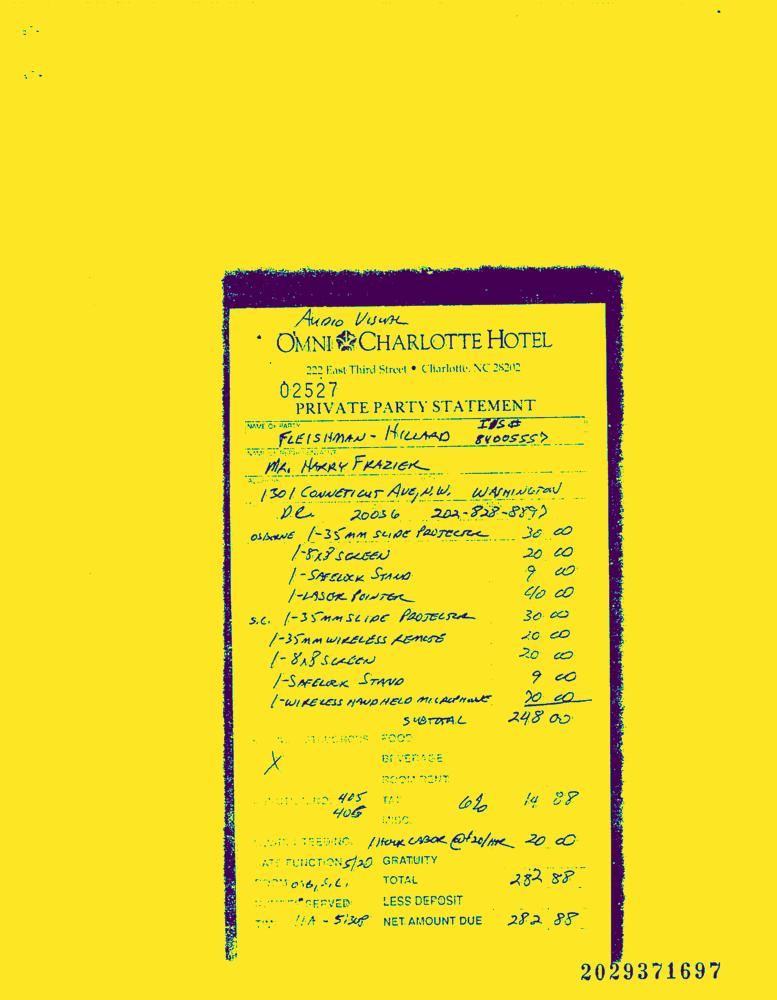 Audio Visual
OMNI CHARLOTTE HOTEL
222 East Third Street • Charlotte, NC 28202
02527
PRIVATE PARTY STATEMENT
NAME OF PARTY
FLEISHMAN - HILLARD
84005557
MR. HARRY FRAZIER
1301 CONNETICUT AVE, N.W. WASHINGTON
D.C. 20036 202-828-8897
OSBORNE 1-35MM SLIDE PROJECTOR 30 00
1-8X8 SCREEN 20 00
1-SAFELOCK STAND 9 00
1-LASER POINTER 40 00
S.C. 1-35MM SLIDE PROJECTOR 30 00
1-35MM WIRELESS REMOTE 20 00
1-8X8 SCREEN 20 00
1-SAFELOCK STAND 9 00
1-WIRELESS HANDHELD MICROPHONE 70 00
SUBTOTAL 248 00
FOOD
X BEVERAGE
ROOM RENT
405 TAX 6% 14 88
406 MISC.
1 HOUR LABOR @ $20/HR 20 00
FUNCTION 5/20 GRATUITY
TOTAL 282 88
SERVED LESS DEPOSIT
11A - 5:30P NET AMOUNT DUE 282 88
2029371697